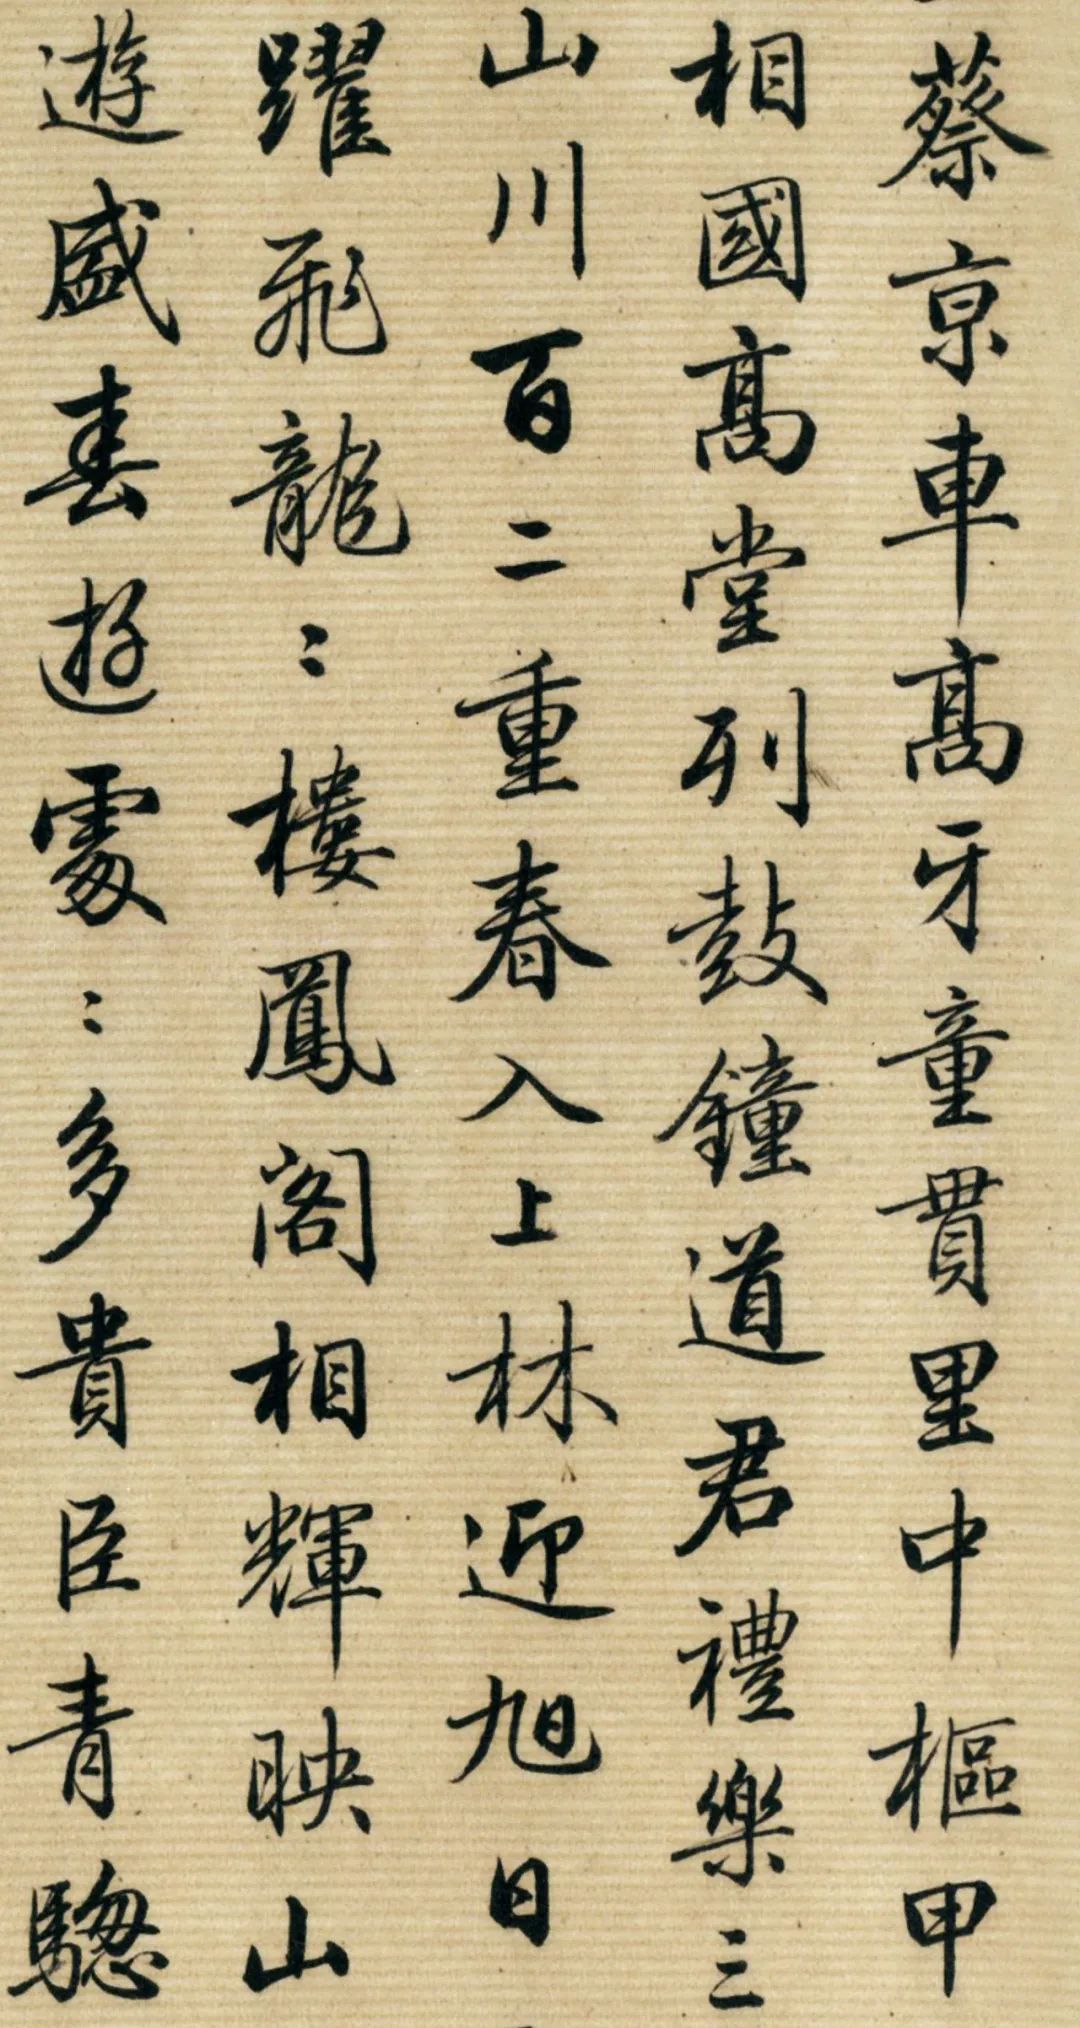 蔡京車高牙童貫里中樞甲
相國高堂列鼓鐘道君禮樂三
山川百二重春入上林迎旭日
躍飛龍〻樓鳳閣相輝映山
遊盛春遊處〻多貴臣青驄